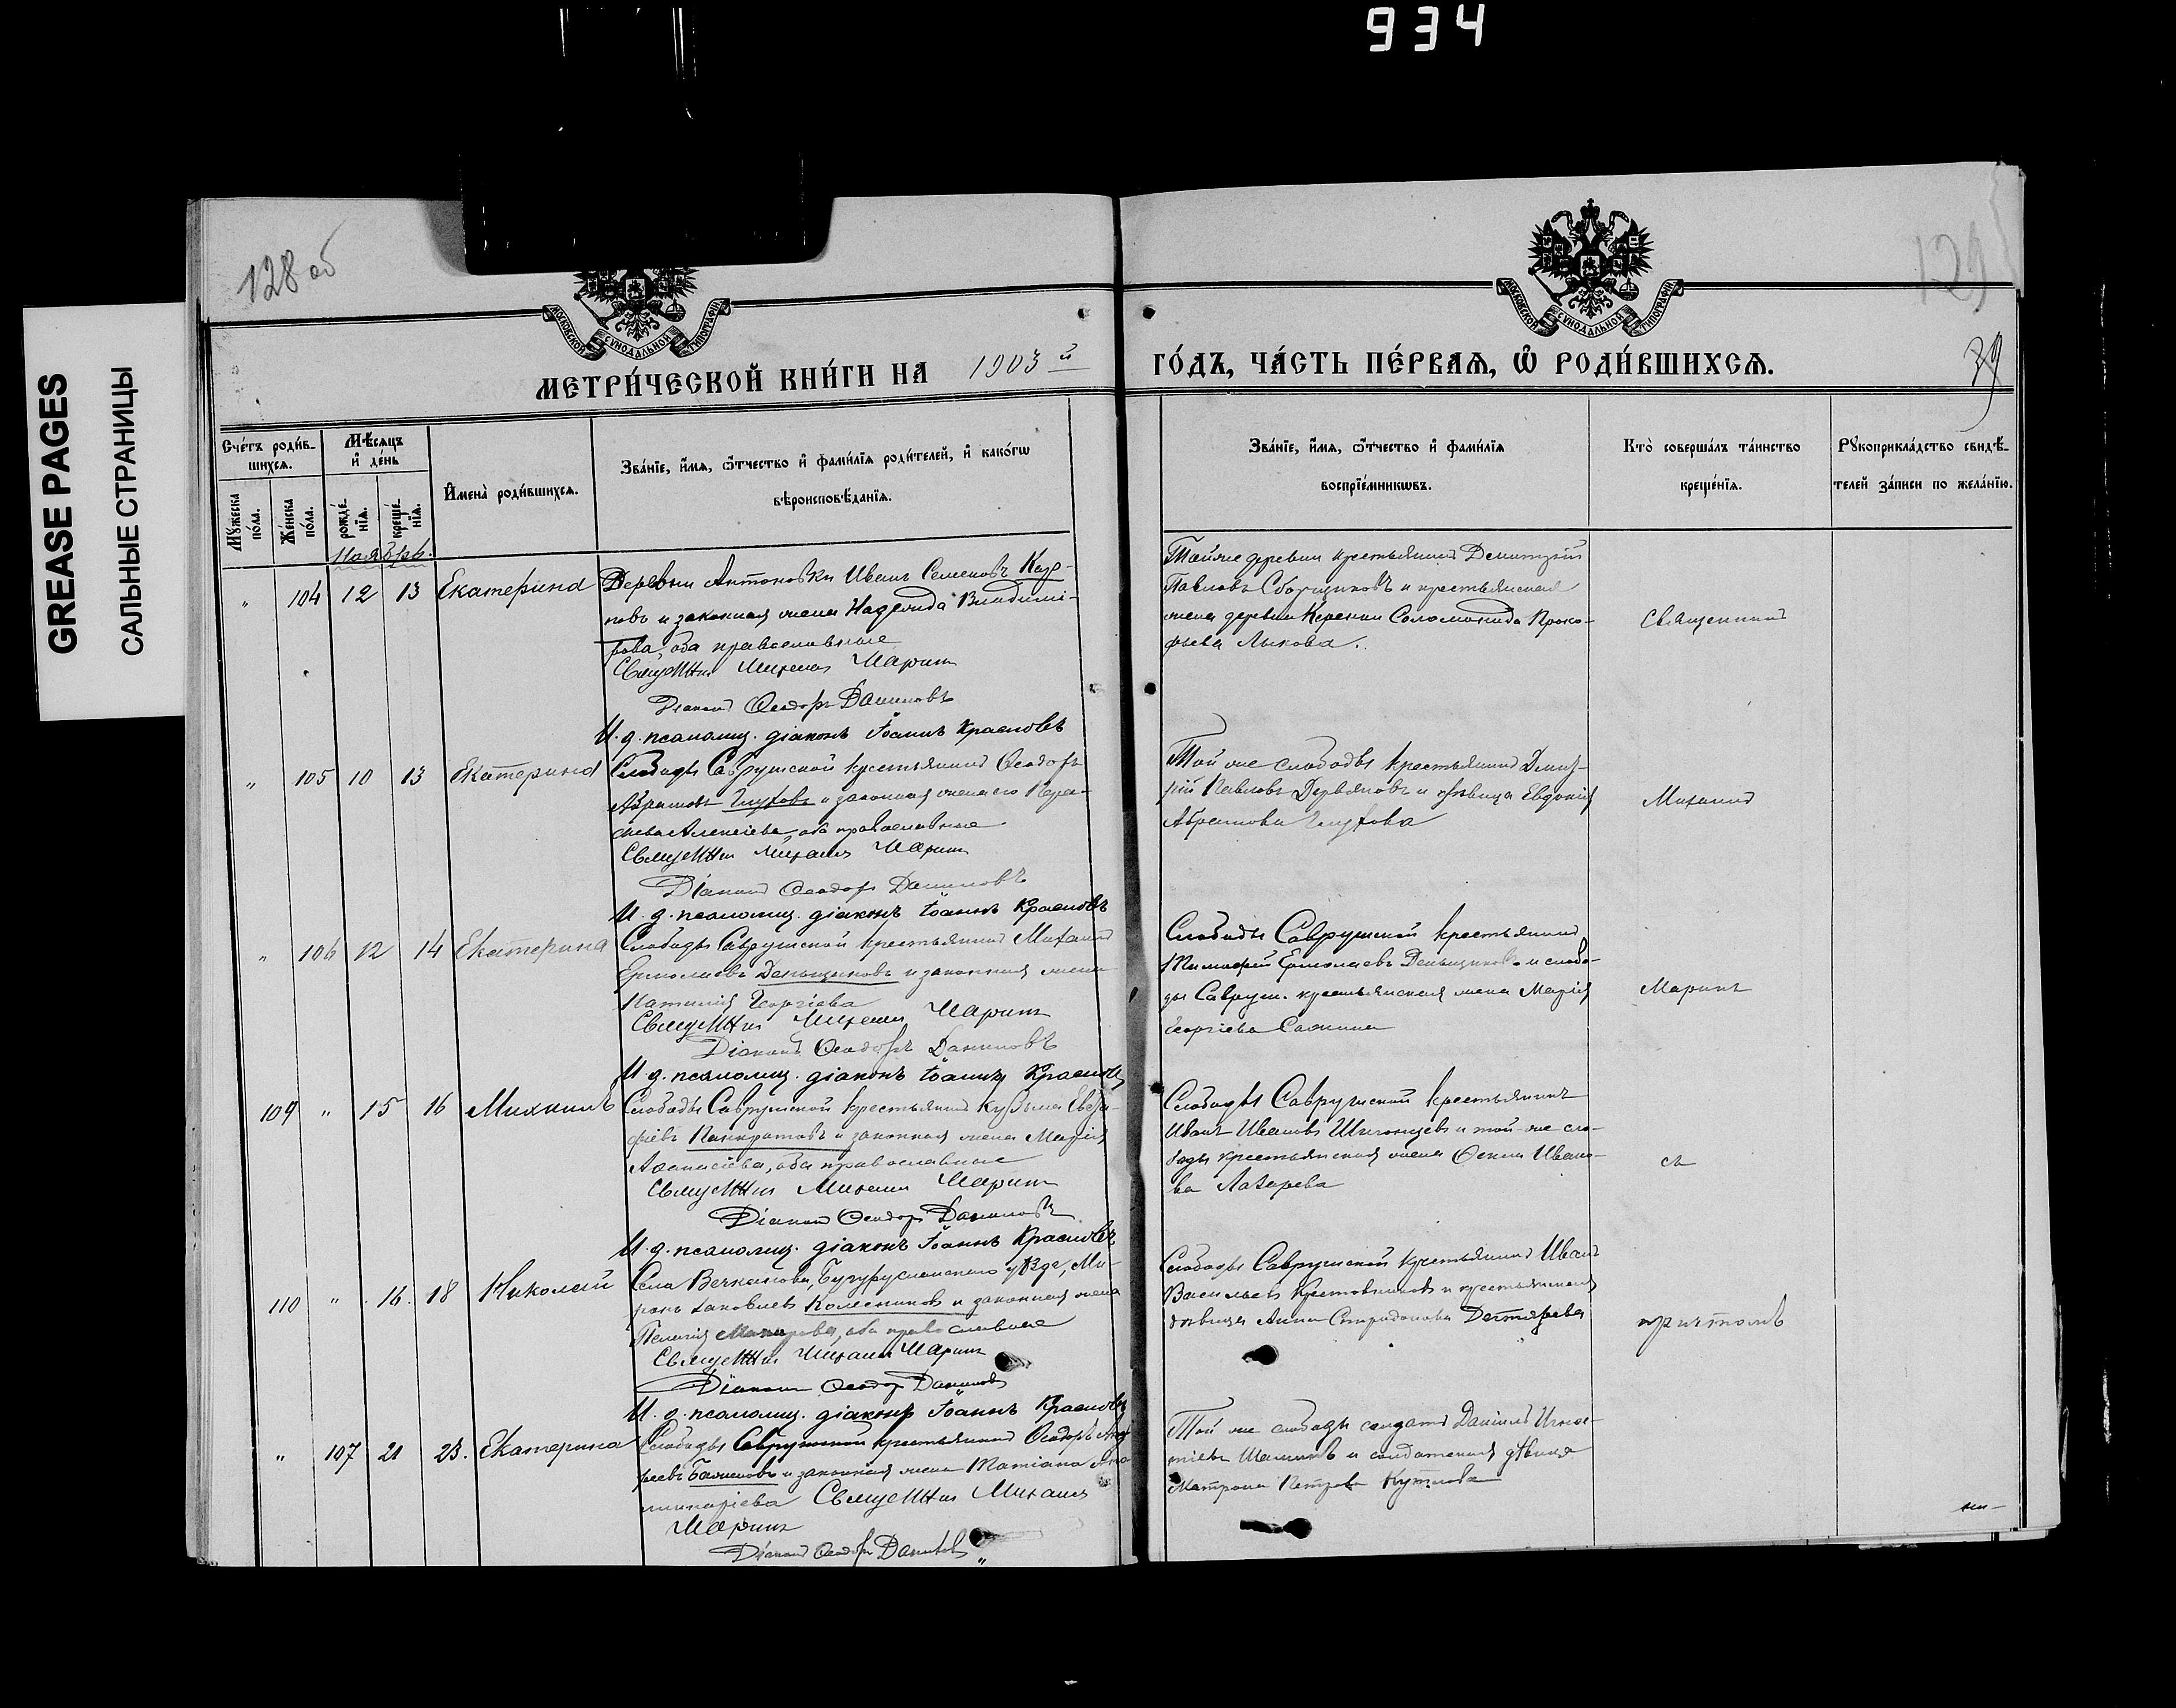 934
GREASE PAGES
САЛЬНЫЕ СТРАНИЦЫ
128 об
129
39
МОСКОВСКОЙ СѴНОДАЛЬНОЙ ТИПОГРАФІИ
МОСКОВСКОЙ СѴНОДАЛЬНОЙ ТИПОГРАФІИ
МЕТРИ́ЧЕСКОЙ КНИ́ГИ НА 1903 й ГО́ДЪ, ЧА́СТЬ ПЕ́РВАѦ, Ѡ҆ РОДИ́ВШИХСѦ.
Сче́тъ роди́в-
шихсѧ.
Мѣ́сѧцъ
и҆ де́нь
Мꙋ́жеска
по́ла.
Же́нска
по́ла.
рожде́-
нїѧ.
креще́-
нїѧ.
И҆мена̀ роди́вшихсѧ.
Зва́нїе, и҆́мѧ, ѻ҆́тчество и҆ фами́лїѧ роди́телей, и҆ како́гѡ
вѣроисповѣ́данїѧ.
Зва́нїе, и҆́мѧ, ѻ҆́тчество и҆ фами́лїѧ
воспрїе́мникѡвъ.
Кто̀ соверша́лъ та́инство
креще́нїѧ.
Рꙋкоприкла́дство свидѣ́-
телей за́писи по жела́нїю.
Ноябрь.
" 104 12 13 Екатерина
Деревни Антоновки Иванъ Семеновъ Кар-
повъ и законная жена Надежда Владими-
рова, оба православные
Священникъ Михаилъ Маринъ
Діаконъ Ѳеодоръ Даниловъ
И. д. псаломщ. діаконъ Іоаннъ Красновъ
Тойже деревни крестьянинъ Димитрій
Павловъ Сборщиковъ и крестьянская
жена деревни Керенки Соломонида Проко-
фьева Лыкова.
Священникъ
" 105 10 13 Екатерина
Слободы Саврушской крестьянинъ Ѳеодоръ
Абрамовъ Глуховъ и законная жена его
Алексѣева, оба православные
Священникъ Михаилъ Маринъ
Діаконъ Ѳеодоръ Даниловъ
И. д. псаломщ. діаконъ Іоаннъ Красновъ
Той же слободы крестьянинъ Дмит-
рій Павловъ и дѣвица Евдокія
Абрамова Глухова
Михаилъ
" 106 12 14 Екатерина
Слободы Саврушской крестьянинъ Михаилъ
Ермолаевъ Деньщиковъ и законная жена
Наталія Георгіева
Священникъ Михаилъ Маринъ
Діаконъ Ѳеодоръ Даниловъ
И. д. псаломщ. діаконъ Іоаннъ Красновъ
Слободы Саврушской крестьянинъ
Тимофей Ермолаевъ Деньщиковъ и слобо-
ды Савруш. крестьянская жена Марія
Георгіева
Маринъ
109 " 15 16 Михаилъ
Слободы Саврушской крестьянинъ Кузьма
Панкратовъ и законная жена Марія
Аѳанасіева, оба православные
Священникъ Михаилъ Маринъ
Діаконъ Ѳеодоръ Даниловъ
И. д. псаломщ. діаконъ Іоаннъ Красновъ
Слободы Саврушской крестьянинъ
Иванъ Ивановъ и той-же сло-
боды крестьянская жена Ѳекла Ивано-
ва Лазарева
съ
110 " 16. 18 Николай
Села Вечканова, Бугурусланскаго уѣзда, Ми-
ронъ Іаковлевъ Колесниковъ и законная жена
Пелагія, оба православные
Священникъ Михаилъ Маринъ
Діаконъ Ѳеодоръ Даниловъ
И. д. псаломщ. діаконъ Іоаннъ Красновъ
Слободы Саврушской крестьянинъ Иванъ
Васильевъ и крестьянская
дѣвица Анна Спиридонова Дегтярева
причтомъ
" 107 21 23. Екатерина
Слободы Саврушской крестьянинъ Ѳеодоръ Анд-
реевъ и законная жена Татіана Апо-
линаріева Священникъ Михаилъ
Маринъ
Діаконъ Ѳеодоръ Даниловъ
Той же слободы солдатъ Даніилъ Игна-
тіевъ и солдатская дѣвица
Матрона Петрова